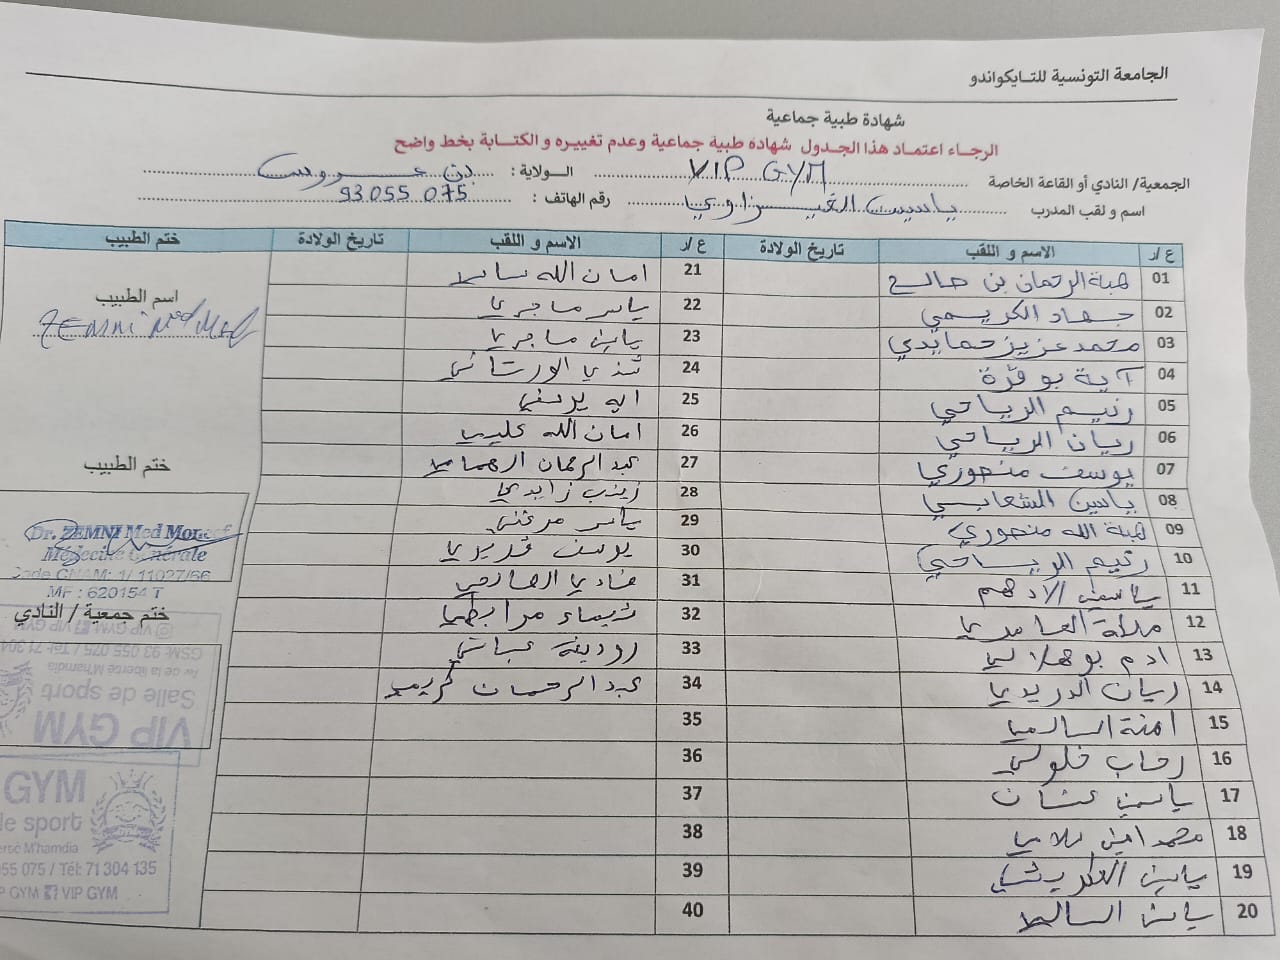 الجامعة التونسية للتايكواندو
شهادة طبية جماعية
الرجاء اعتماد هذا الجدول شهادة طبية جماعية وعدم تغييره و الكتابة بخط واضح
الجمعية/ النادي أو القاعة الخاصة VIP GYM الولاية : بن عروس
اسم و لقب المدرب ياسين الغيزاوي رقم الهاتف : 93055 075
ع /ر الاسم و اللقب تاريخ الولادة ع /ر الاسم و اللقب تاريخ الولادة ختم الطبيب
01 هبة الرحمان بن صالح 21 امان الله سالم
02 جهاد الكريمي 22 ياسر ماجري
03 محمد عزيز حمايدي 23 ياسين ماجري
04 آية بوقرة 24 شذى الورتاني
05 رنيم الرياحي 25 اية يوسفي
06 ريان الرياحي 26 امان الله عليمي
07 يوسف منصوري 27 عبد الرحمان الهمامي
08 ياسين الشعابي 28 زينب زايدي
09 هبة الله منصوري 29 ياسر مرغني
10 رنيم الرياحي 30 يوسف قديري
11 ياسمين الادهم 31 فادي الصالحي
12 العامري 32 شيماء مرابطي
13 ادم بوهلالي 33 رودينة عباشي
14 ريان الدريدي 34 عبد الرحمان كريمي
15 امنة السالمي 35
16 رحاب خلولي 36
17 ياسمين عشان 37
18 محمد امين 38
19 ياسين 39
20 ياسين السالمي 40
اسم الطبيب
ZEMNI Med Mo
ختم الطبيب
Dr. ZEMNI Med Moncef
Médecine Générale
Code CNAM: 1/ 11027/66
MF : 620154 T
ختم جمعية / النادي
VIP GYM VIP GYM
GSM: 93 055 075 / Tél: 71 304
Av de la liberté M'hamdia
Salle de sport
VIP GYM
GYM
de sport
erté M'hamdia
055 075 / Tél: 71 304 135
P GYM VIP GYM